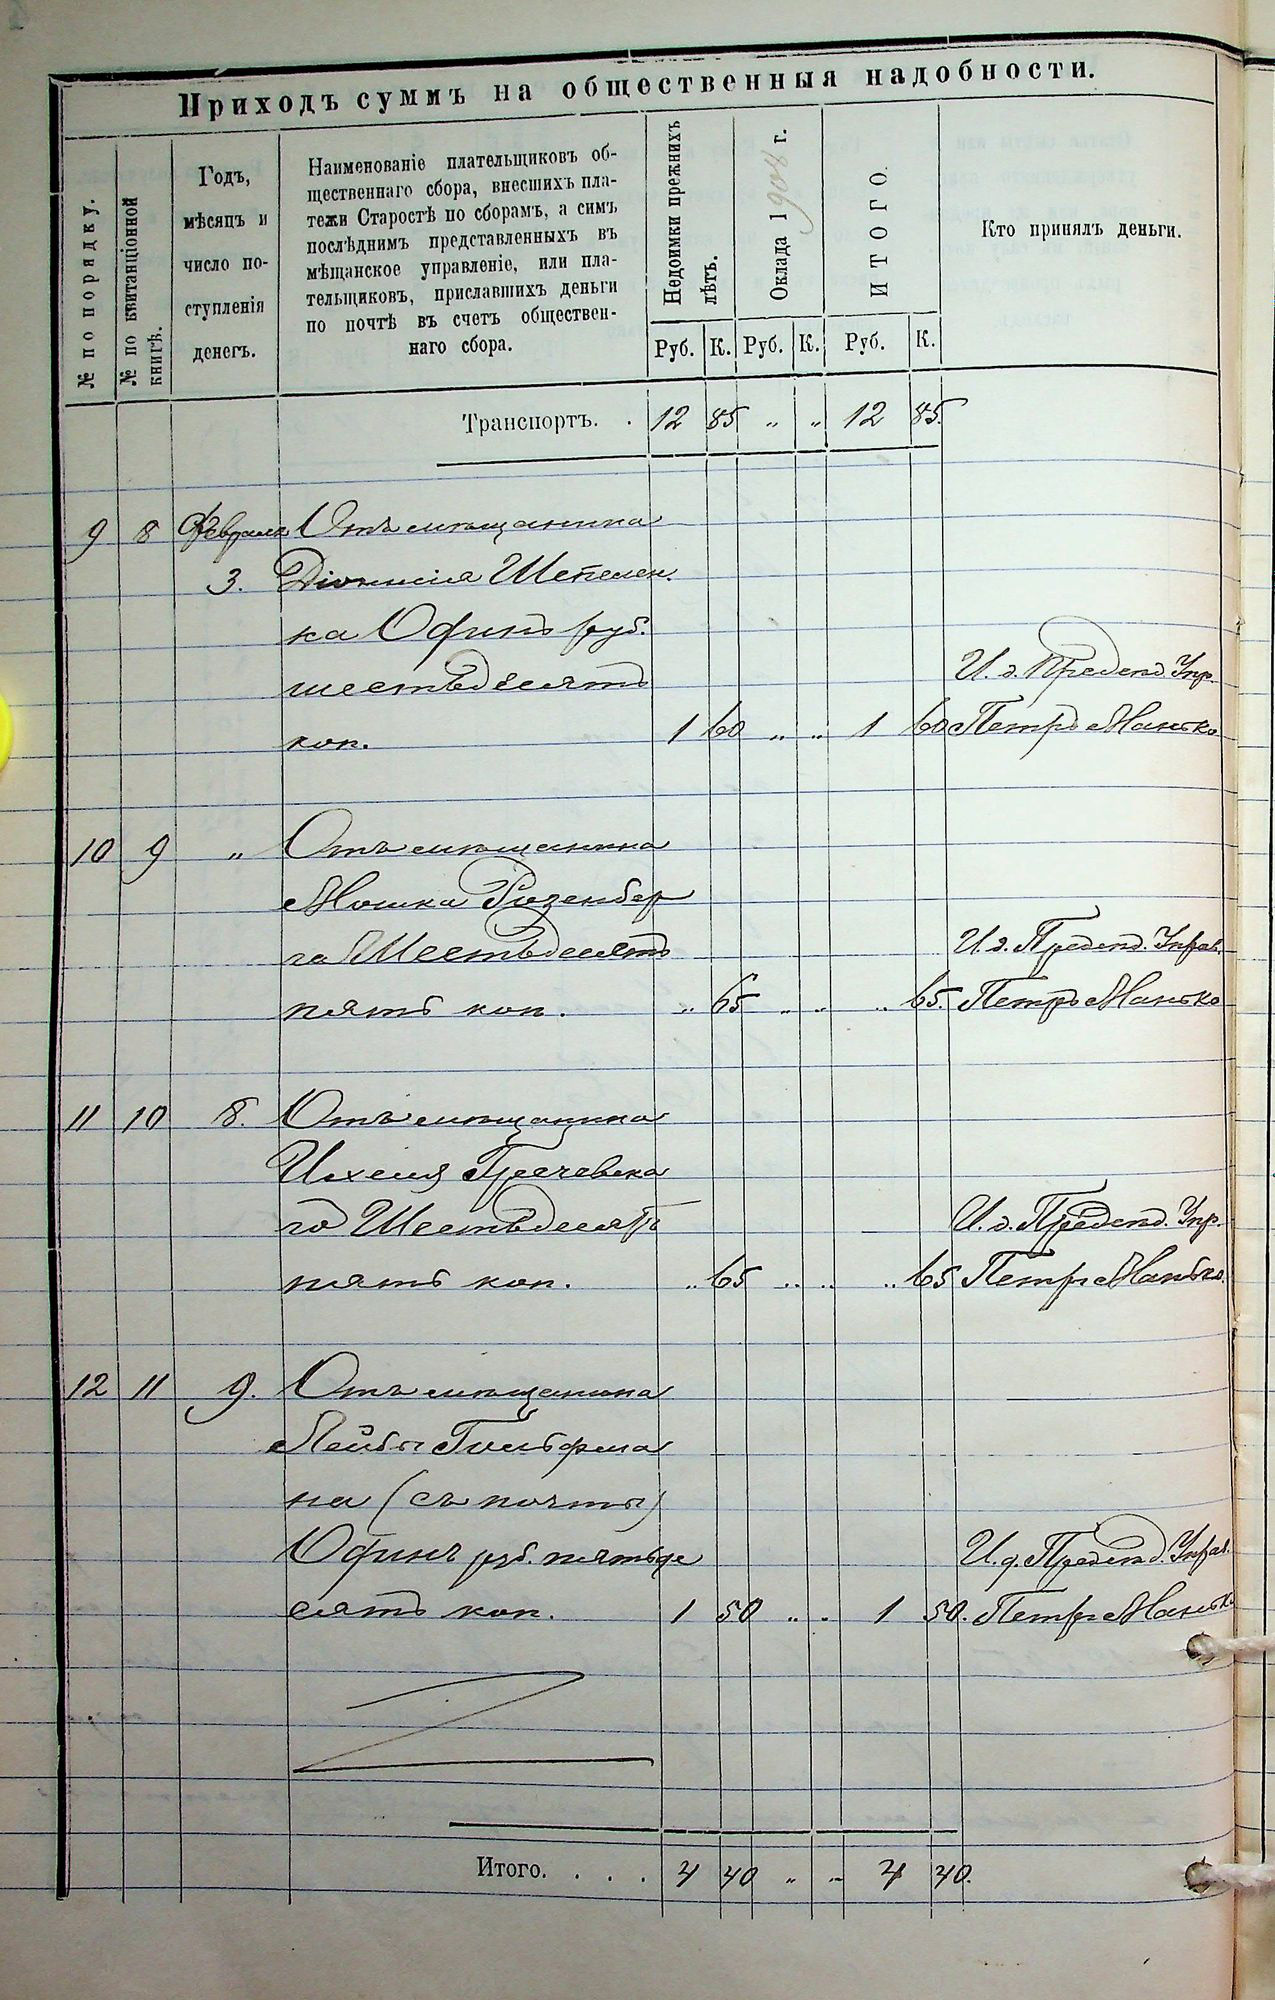 Приходъ суммъ на общественныя надобности.
№ по порядку.
№ по квитанціонной книгѣ.
Годъ, мѣсяцъ и число поступленія денегъ.
Наименованіе плательщиковъ об-
щественнаго сбора, внесшихъ пла-
тежи Старостѣ по сборамъ, а симъ
послѣднимъ представленныхъ въ
мѣщанское управленіе, или пла-
тельщиковъ, приславшихъ деньги
по почтѣ въ счетъ обществен-
наго сбора.
Недоимки прежнихъ лѣтъ.
Оклада 1908 г.
ИТОГО.
Кто принялъ деньги.
Руб. К. Руб. К. Руб. К.
Транспортъ. . 12 85 " " 12 85.
9 8 Февраля Отъ мѣщанина
3. Діонисія Шепелен-
ка Одинъ руб.
шестьдесятъ И. д. Предсѣд. Упр.
коп. 1 60 " " 1 60 Петръ Манько
10 9 " Отъ мѣщанина
Мошка Розенбер
га Шестьдесятъ И. д. Предсѣд. Управ.
пять коп. " 65 " " " 65. Петръ Манько
11 10 8. Отъ мѣщанина
Ихеля Гречевска
го Шестьдесятъ И. д. Предсѣд. Упр.
пять коп. " 65 " " " 65 Петръ Манько
12 11 9. Отъ мѣщанина
Лейбы Гольфма
на (съ почты)
Одинъ руб. пятьде И. д. Предсѣд. Управ.
сятъ коп. 1 50 " " 1 50. Петръ Манько
Итого. . . . 4 40 " " 4 40.